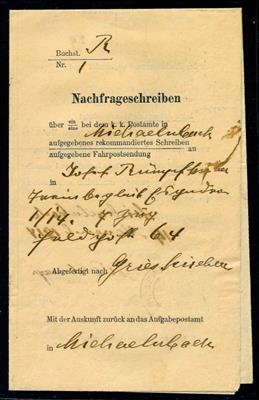 Buchst. R
Nr. 1
Nachfrageschreiben
über ein/eine bei dem k. k. Postamte in
Michaelnbach
aufgegebenes rekommandiertes Schreiben an
aufgegebene Fahrpostsendung
Josef
in
Feldpost 64
Abgefertigt nach Grieskirchen
Mit der Auskunft zurück an das Aufgabepostamt
in Michaelnbach